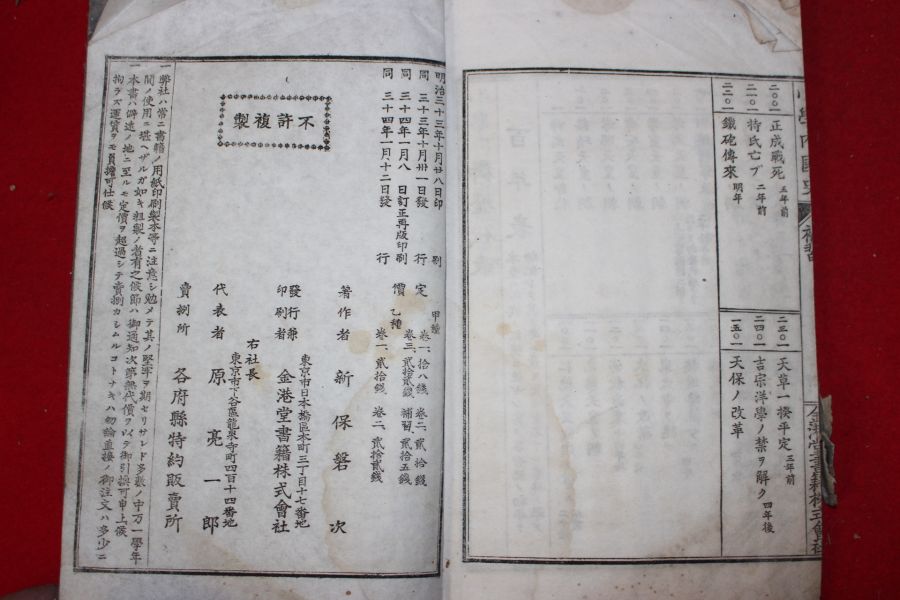 二〇〇一 正成戰死 五年前
二一〇一 持氏亡ブ 二年前
二二〇一 鐵砲傳來 明年
二三〇一 天草一揆平定 三年前
二四〇一 吉宗洋學ノ禁ヲ解ク 四年後
一五〇一 天保ノ改革
明治三十三年十月廿八日印刷
同 三十三年十月卅一日發行
同 三十四年一月八日訂正再版印刷
同 三十四年一月十二日發行
不許複製
定價
甲種 卷一、拾八錢 卷二、貳拾錢
卷三、貳拾貳錢 補習、貳拾五錢
乙種 卷一、貳拾錢 卷二、貳拾貳錢
著作者 新保磐次
東京市日本橋區本町三丁目十七番地
發行兼印刷者 金港堂書籍株式會社
右社長
東京市下谷區龍泉寺町四百十四番地
代表者 原亮一郎
賣捌所 各府縣特約販賣所
一弊社ハ常ニ書籍ノ用紙印刷製本等ニ注意シ勉メテ其ノ堅牢ヲ期セリサレド多數ノ中万一學年
間ノ使用ニ堪ヘザルガ如キ粗製ノ者有之候節ハ御通知次第無代價ヲ以テ御引換可申上候
一本書ハ僻遠ノ地ニ至ルモ定價ヲ超過シテ賣捌カシムルコトナキハ勿論直接ノ御注文ハ多少ニ
拘ラズ運賃ヲモ負擔可仕候